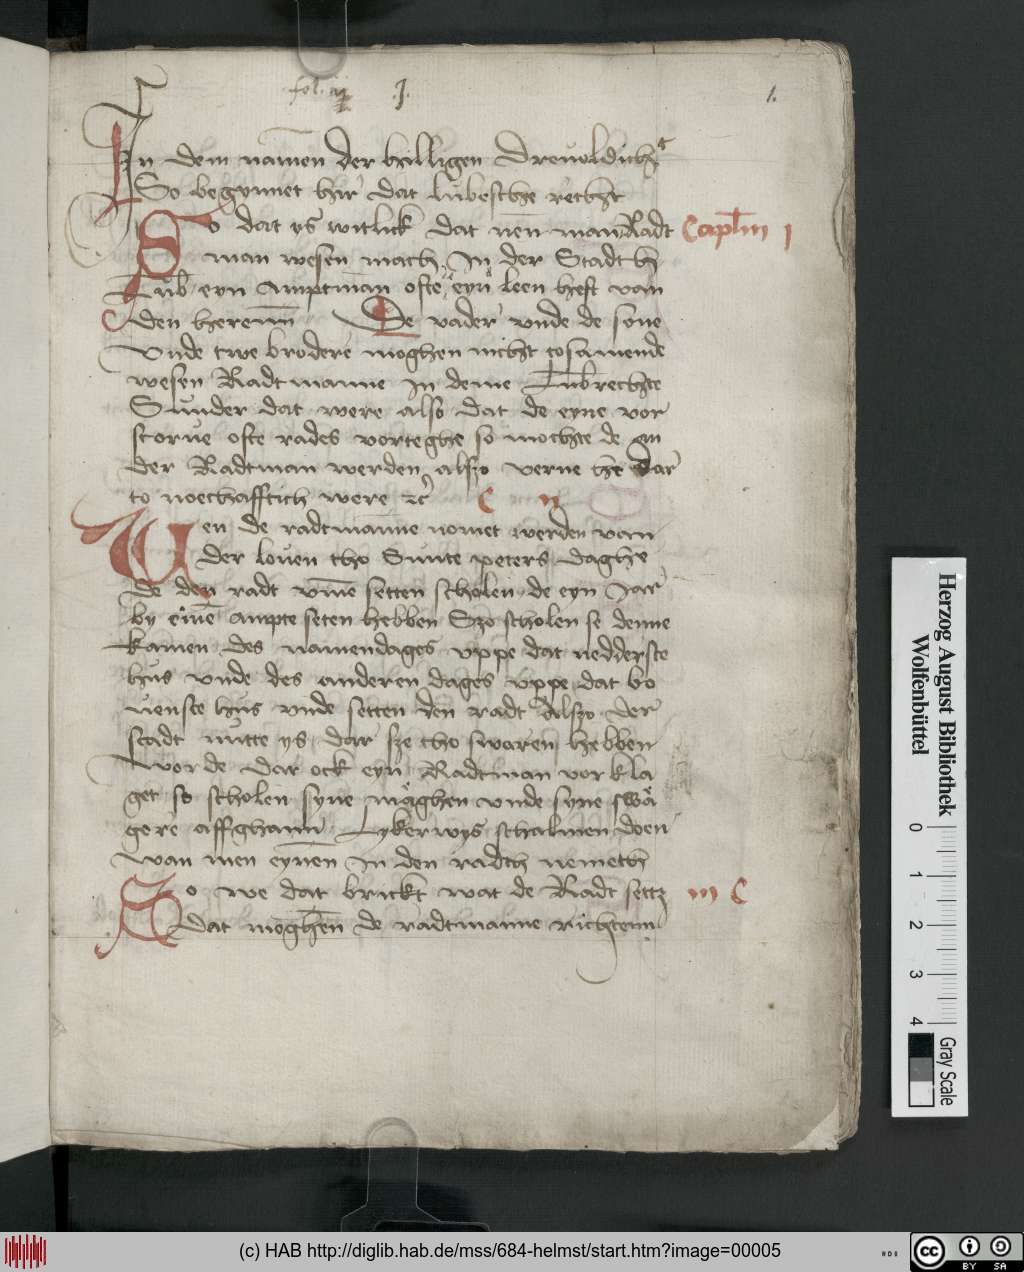 fol. iij .J. 1.
In dem namen der hilligen Dreuoldich&
So begynnet hir dat lubesche recht
So dat ys witlick dat nen man Radt Caplm I
man wesen mach In der Stadt th
Lub eyn amptman ofte eyn leen heft van
den herenn De vader vnde de sone
Vnde twe brodere moghen nicht tosamende
wesen Radtmanne In deme Lubrechte
Sunder dat were also dat de eyne vor
storue ofte rades vorteghe so mochte de an
der Radtman werden alszo verne he dar
to noechafftich were zc C II
Wen de radtmanne nomet werden van
der louen tho Sunte peters daghe
de den radt vmme setten scholen de eyn Jar
by erme ampte seten hebben Szo scholen se denne
kamen des namendages vppe dat nedderste
hus vnde des anderen dages vppe dat bo
uenste hus vnde setten den radt alszo der
stadt nutte ys dar sze tho sworen hebben
worde dar ock eyn Radtman vorkla
get so scholen syne maghen vnde syne swa
gere affghann Lykerwys schalmen doen
wan men eynen In den radth nemeth
So we dat brickt wat de Radt settz III C
dat moghen de radtmanne richtenn
Herzog August Bibliothek
Wolfenbüttel
0 1 2 3 4
Gray Scale
(c) HAB http://diglib.hab.de/mss/684-helmst/start.htm?image=00005
cc BY SA